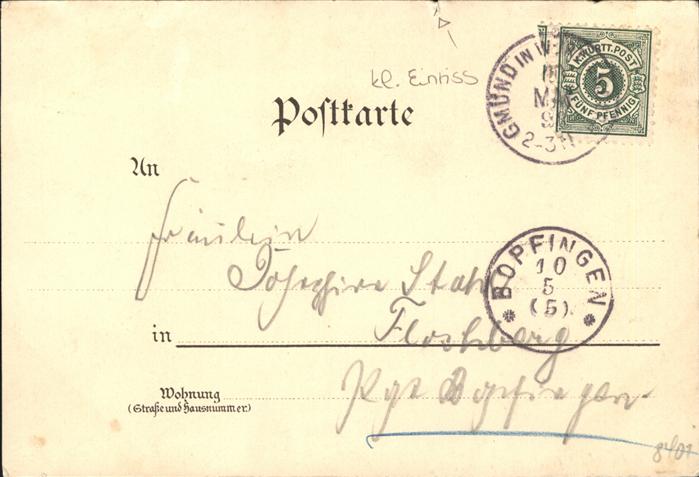 kl. Einriss
K. WÜRTT. POST
5
FÜNF PFENNIG
GMÜND IN W
MAI
9
2-3N
Postkarte
An
Fräulein
Josephine Stah
BOPFINGEN
10
5
(5)
in Flochberg
Wohnung
(Straße und Hausnummer.)
Bopfingen
8401